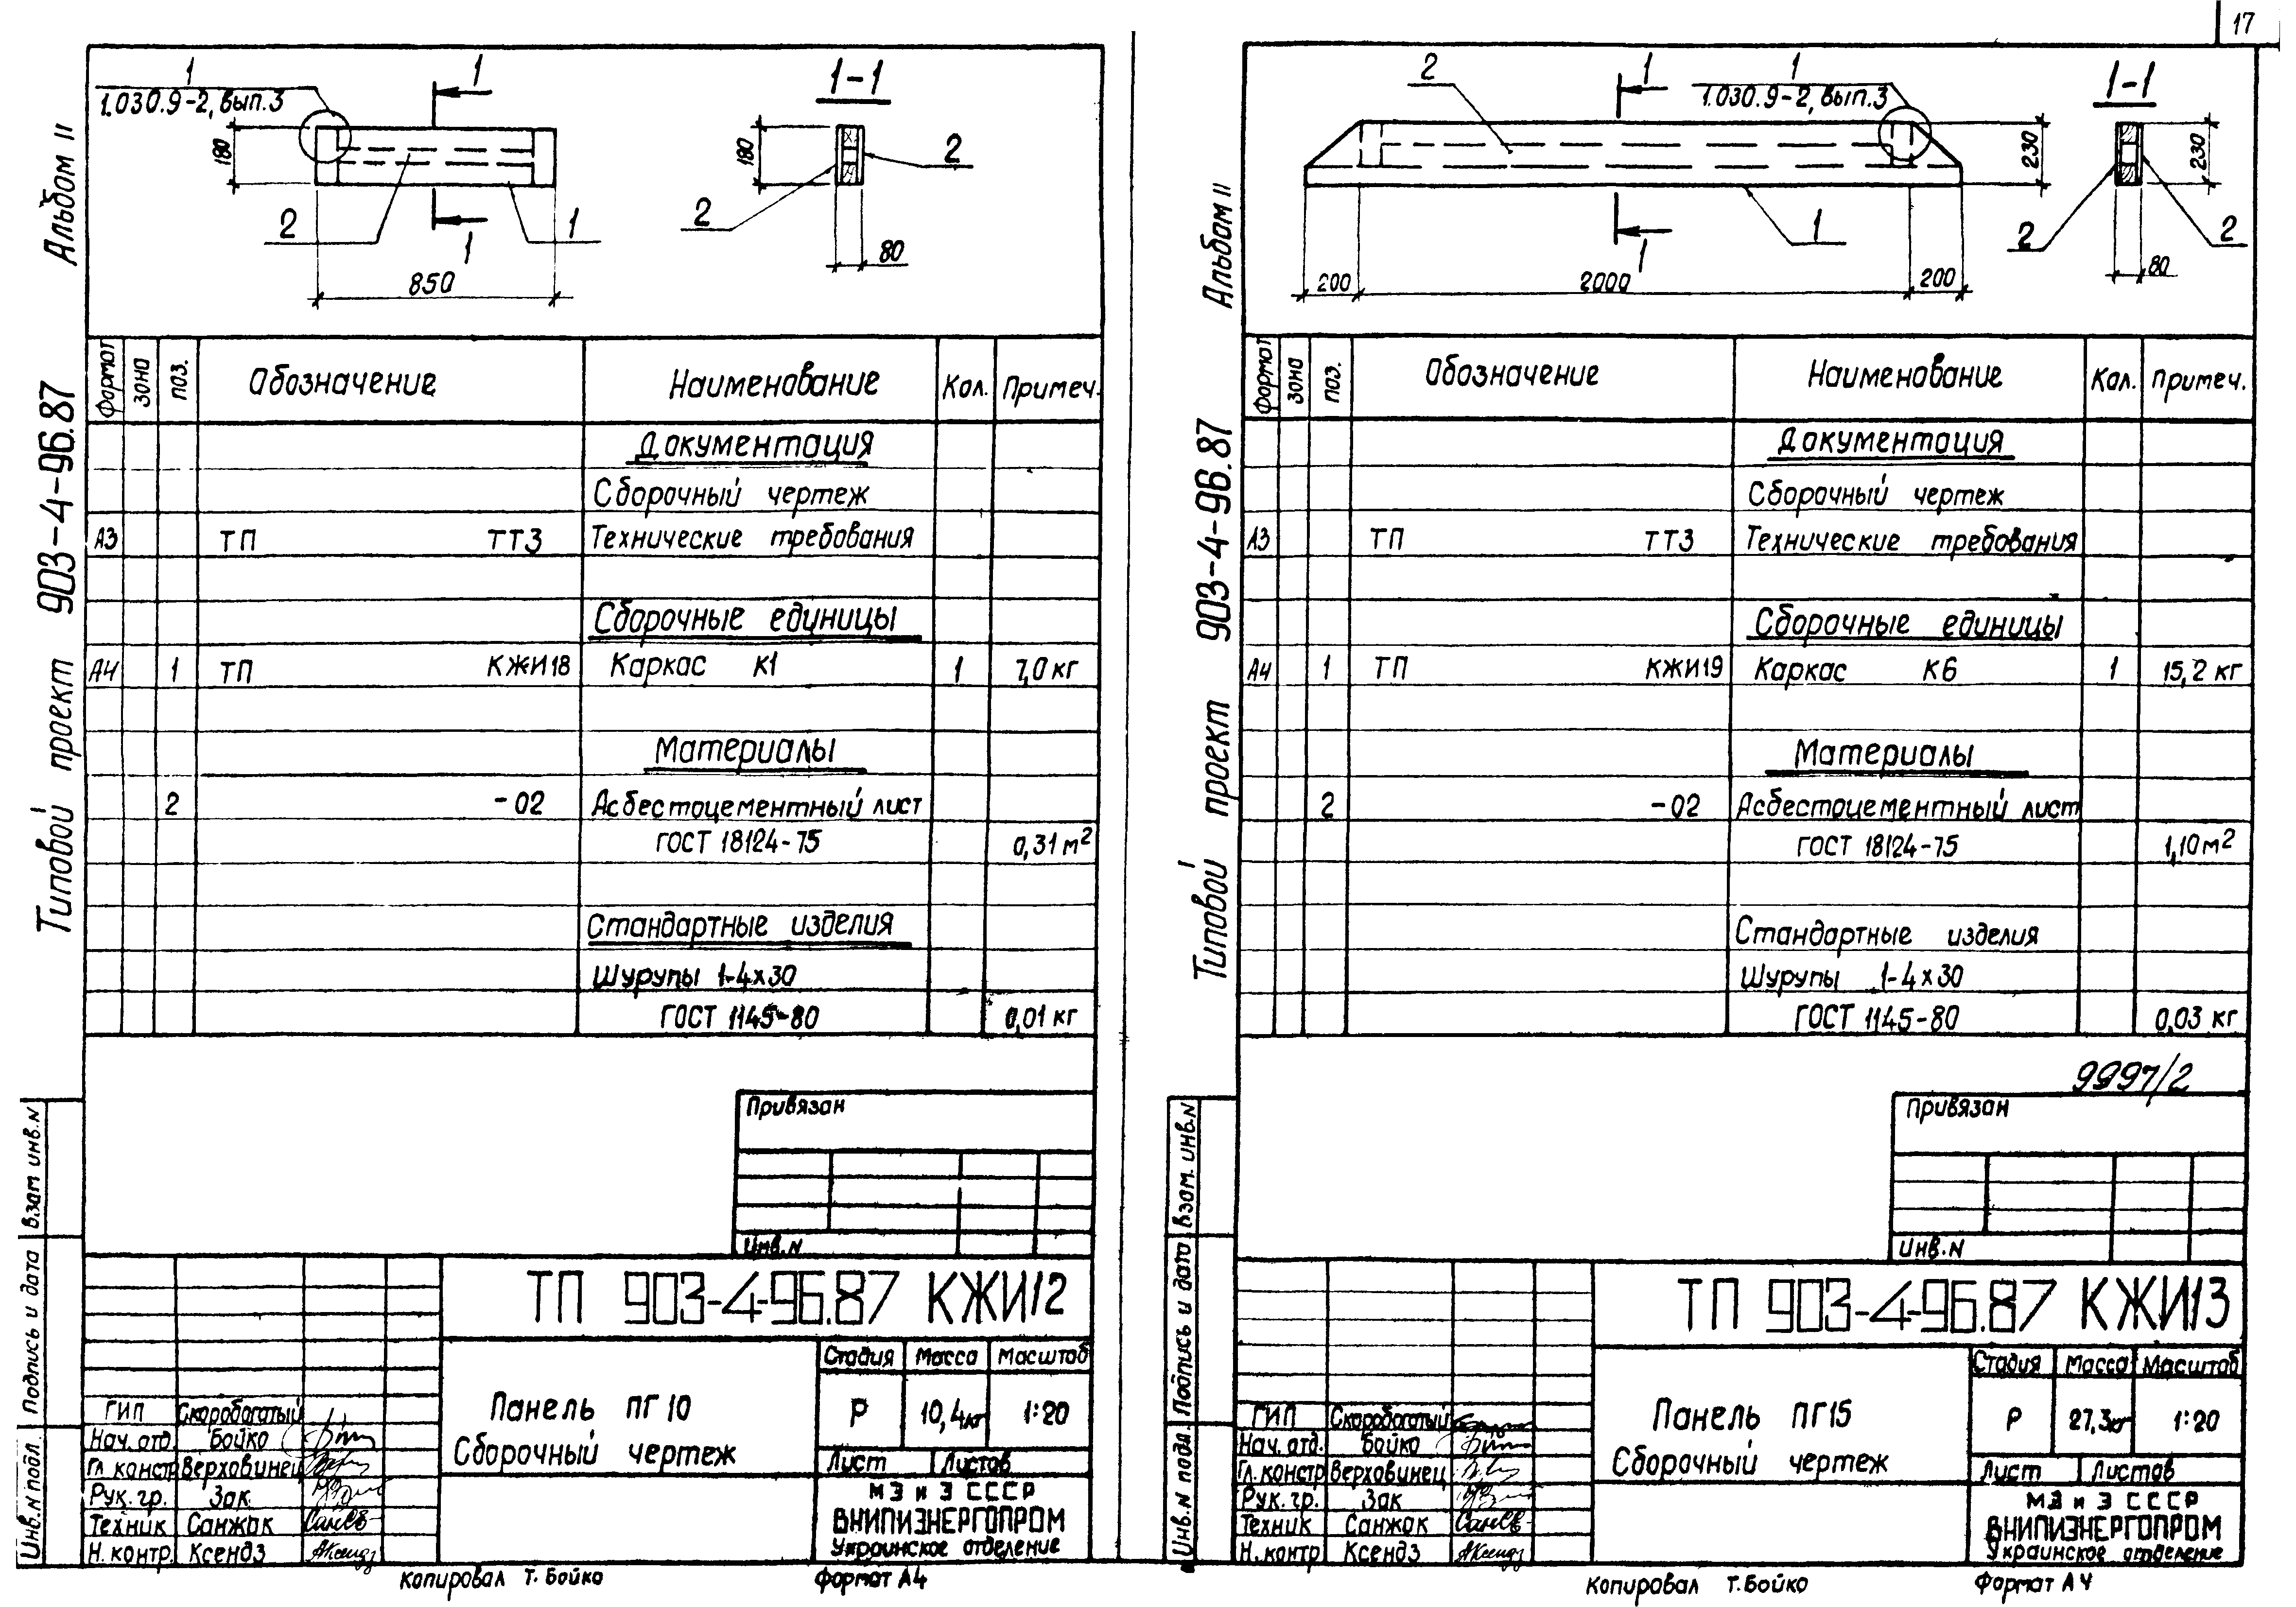 17
Альбом II
Типовой проект 903-4-96.87
1
1.030.9-2, вып.3
1
1-1
180
180
2
2
2
1
1
80
850
Формат Зона Поз. Обозначение Наименование Кол. Примеч.
Документация
Сборочный чертеж
А3 ТП ТТ3 Технические требования
Сборочные единицы
А4 1 ТП КЖИ18 Каркас К1 1 7,0 кг
Материалы
2 -02 Асбестоцементный лист
ГОСТ 18124-75 0,31 м²
Стандартные изделия
Шурупы 1-4х30
ГОСТ 1145-80 0,01 кг
Привязан
Инв.N
ТП 903-4-96.87 КЖИ12
Стадия Масса Масштаб
Панель ПГ10
Сборочный чертеж
Р 10,4кг 1:20
Лист Листов
МЭ и Э СССР
ВНИПИЭНЕРГОПРОМ
Украинское отделение
ГИП Скоробогатый
Нач. отд. Бойко
Гл. констр Верховинец
Рук. гр. Зак
Техник Санжак
Н. контр. Ксендз
Взам инв.N
Подпись и дата
Инв.N подл.
Копировал Т. Бойко Формат А4
Альбом II
Типовой проект 903-4-96.87
2
1
1
1.030.9-2, вып.3
1-1
230
230
2
2
1
1
80
200 2000 200
Формат Зона Поз. Обозначение Наименование Кол. Примеч.
Документация
Сборочный чертеж
А3 ТП ТТ3 Технические требования
Сборочные единицы
А4 1 ТП КЖИ19 Каркас К6 1 15,2 кг
Материалы
2 -02 Асбестоцементный лист
ГОСТ 18124-75 1,10м²
Стандартные изделия
Шурупы 1-4х30
ГОСТ 1145-80 0,03 кг
9997/2
Привязан
Инв.N
ТП 903-4-96.87 КЖИ13
Стадия Масса Масштаб
Панель ПГ15
Сборочный чертеж
Р 27,3кг 1:20
Лист Листов
МЭ и Э СССР
ВНИПИЭНЕРГОПРОМ
Украинское отделение
ГИП Скоробогатый
Нач. отд. Бойко
Гл. констр Верховинец
Рук. гр. Зак
Техник Санжак
Н. контр Ксендз
Взам. инв.N
Подпись и дата
Инв.N подл
Копировал Т. Бойко Формат А4